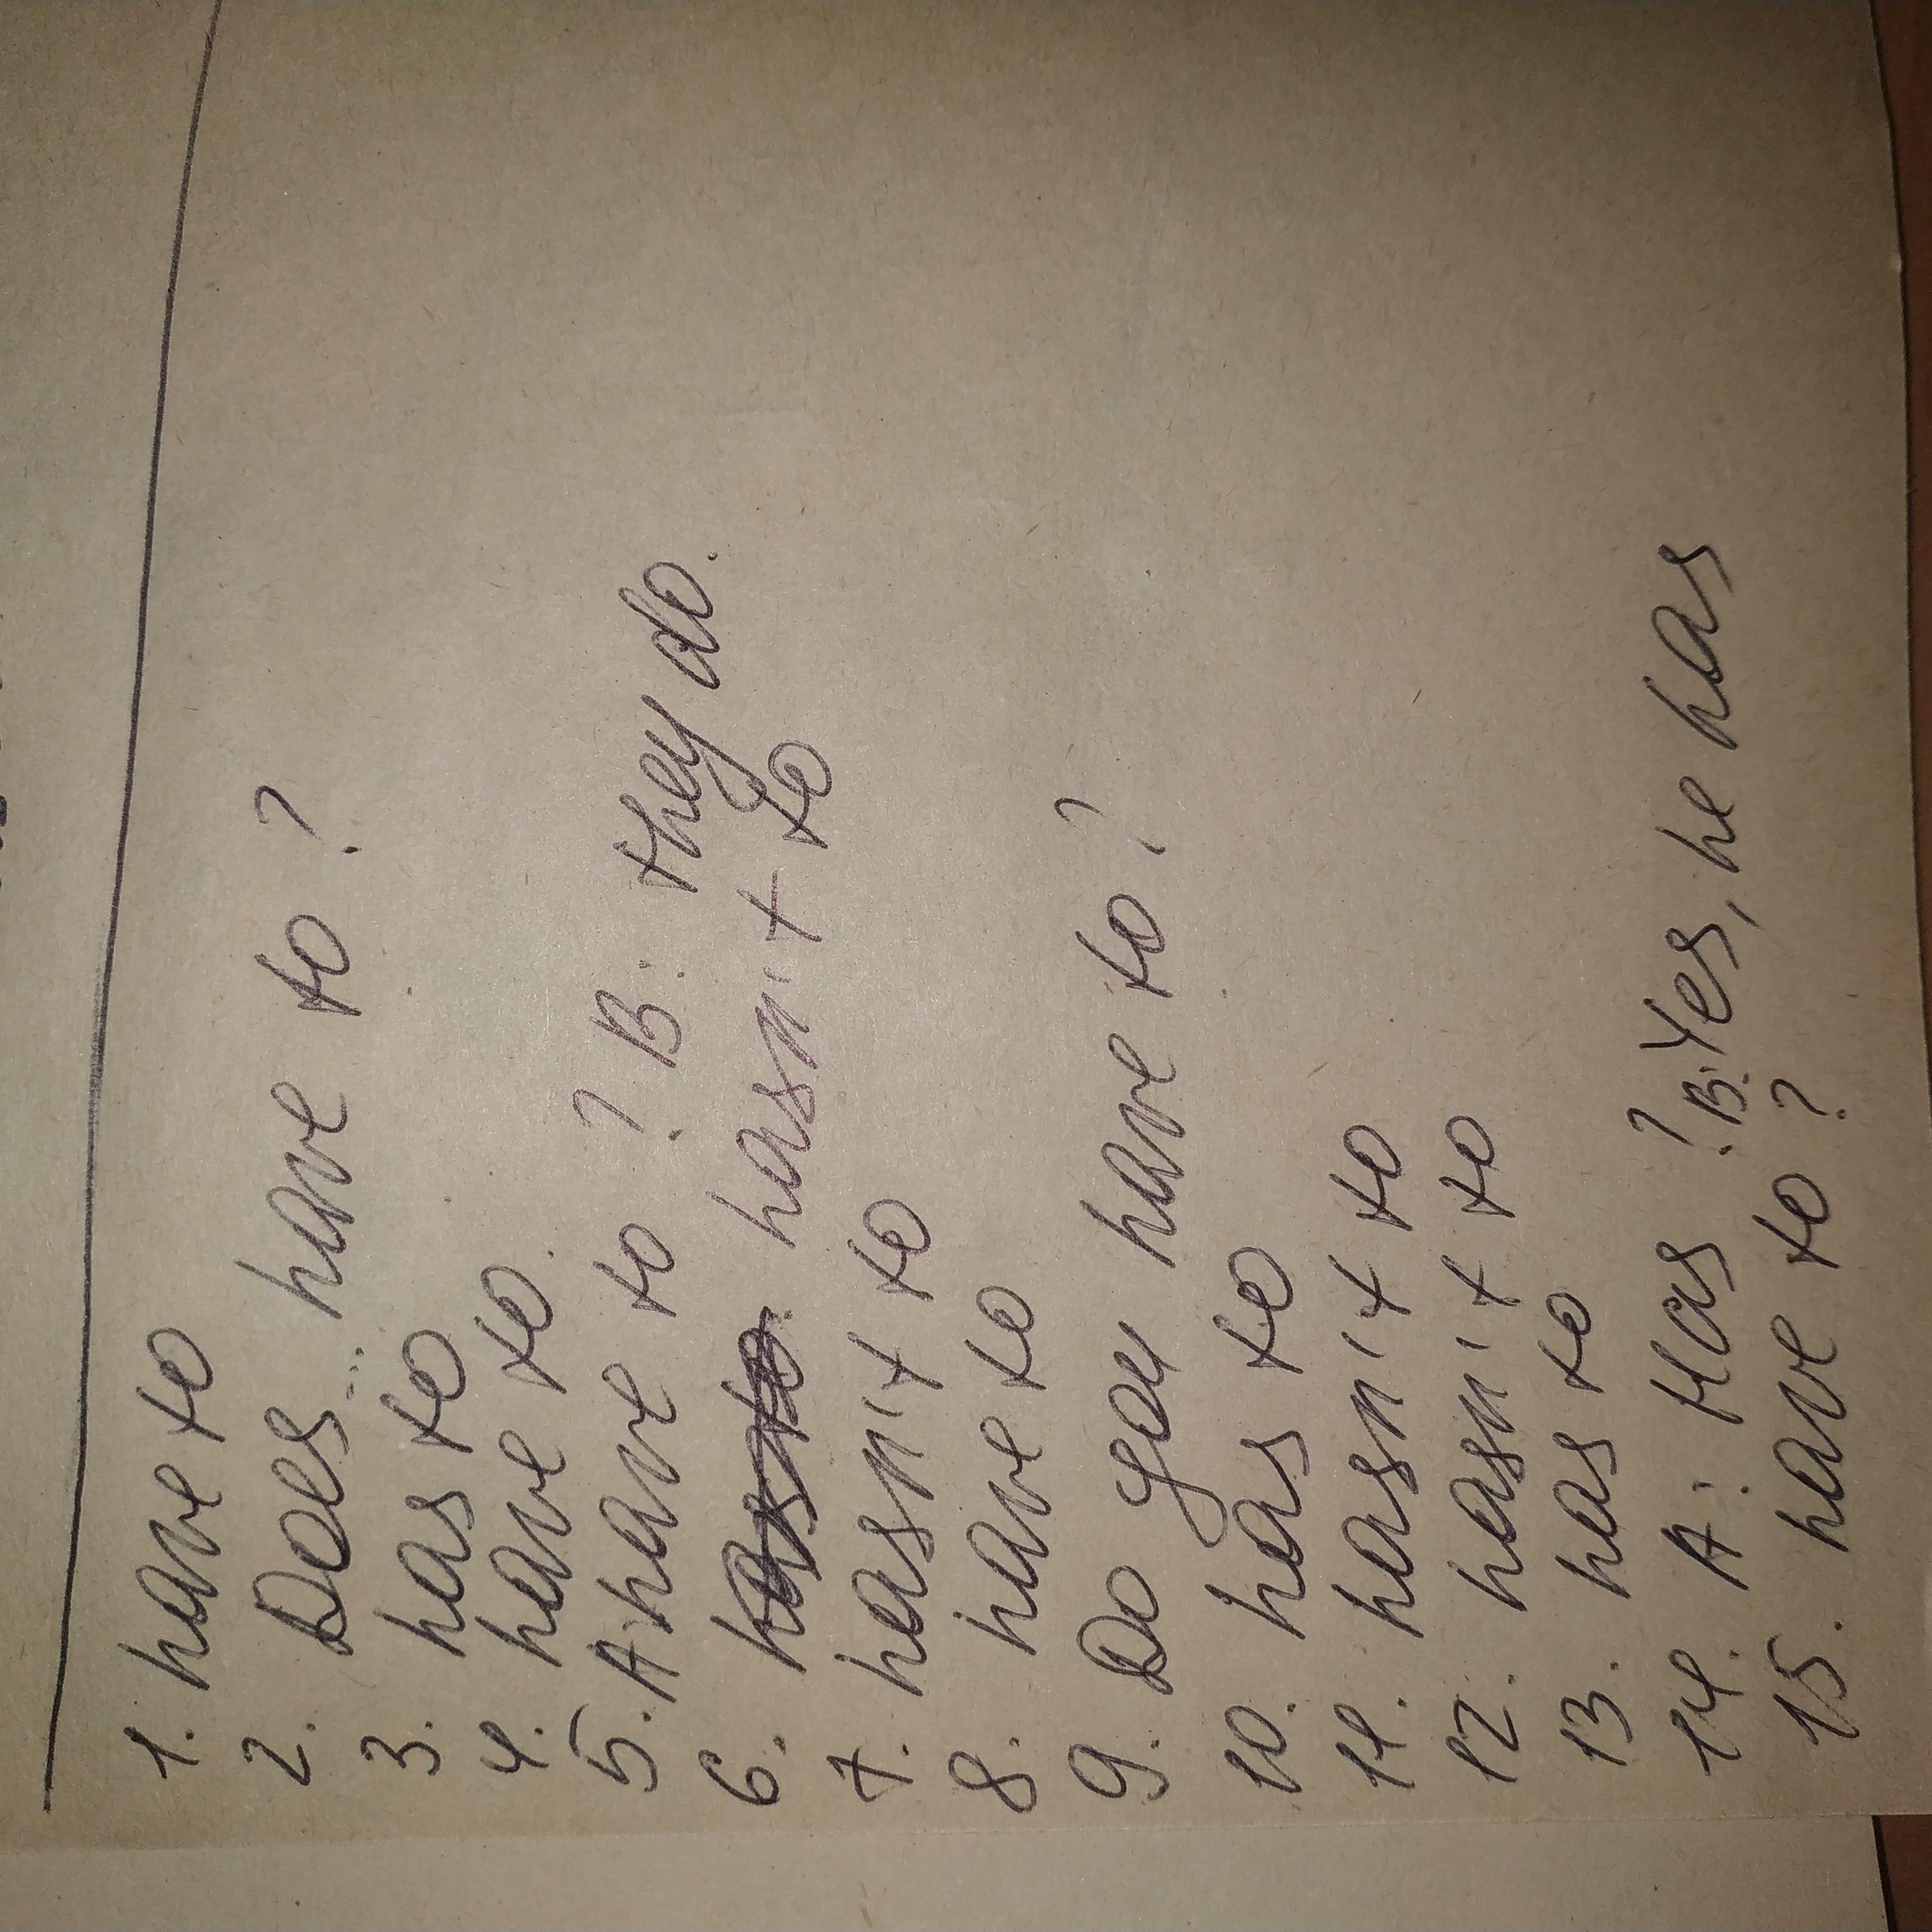 1. have to
2. Does... have to?
3. has to
4. have to.
5. A have to? B: they do.
6. hasn't to
7. hasn't to
8. have to
9. Do you have to?
10. has to
11. hasn't to
12. hasn't to
13. has to
14. A: Has? B: Yes, he has
15. have to?